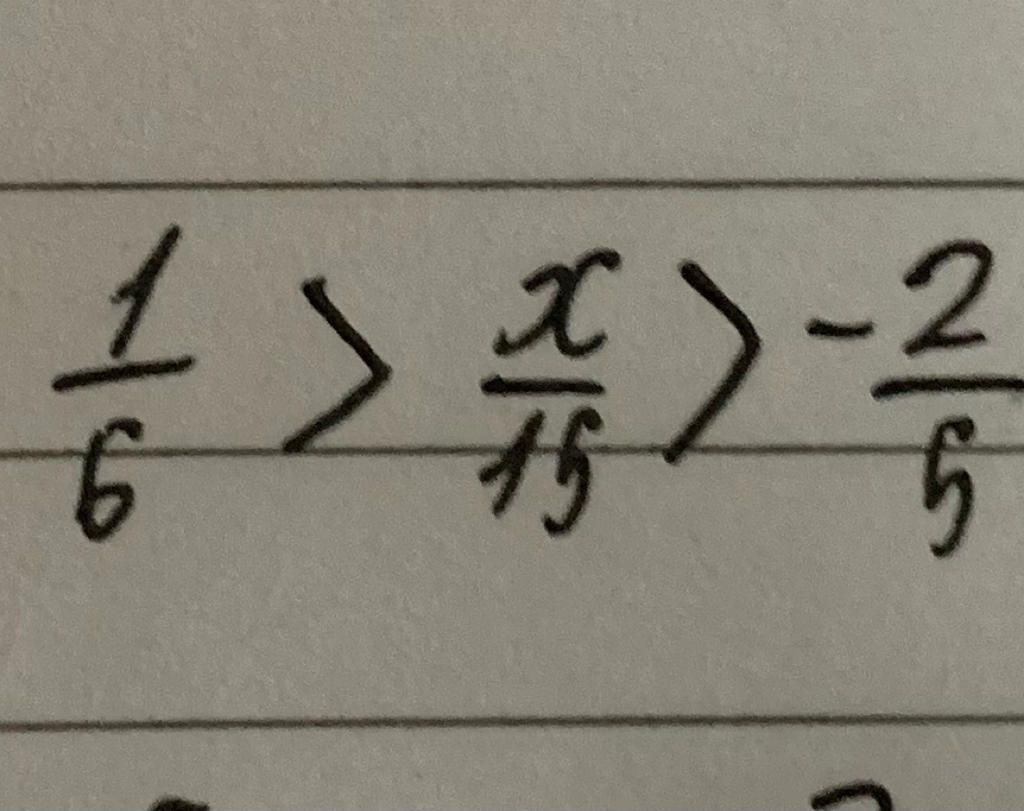 1/6 > x/15 > -2/5